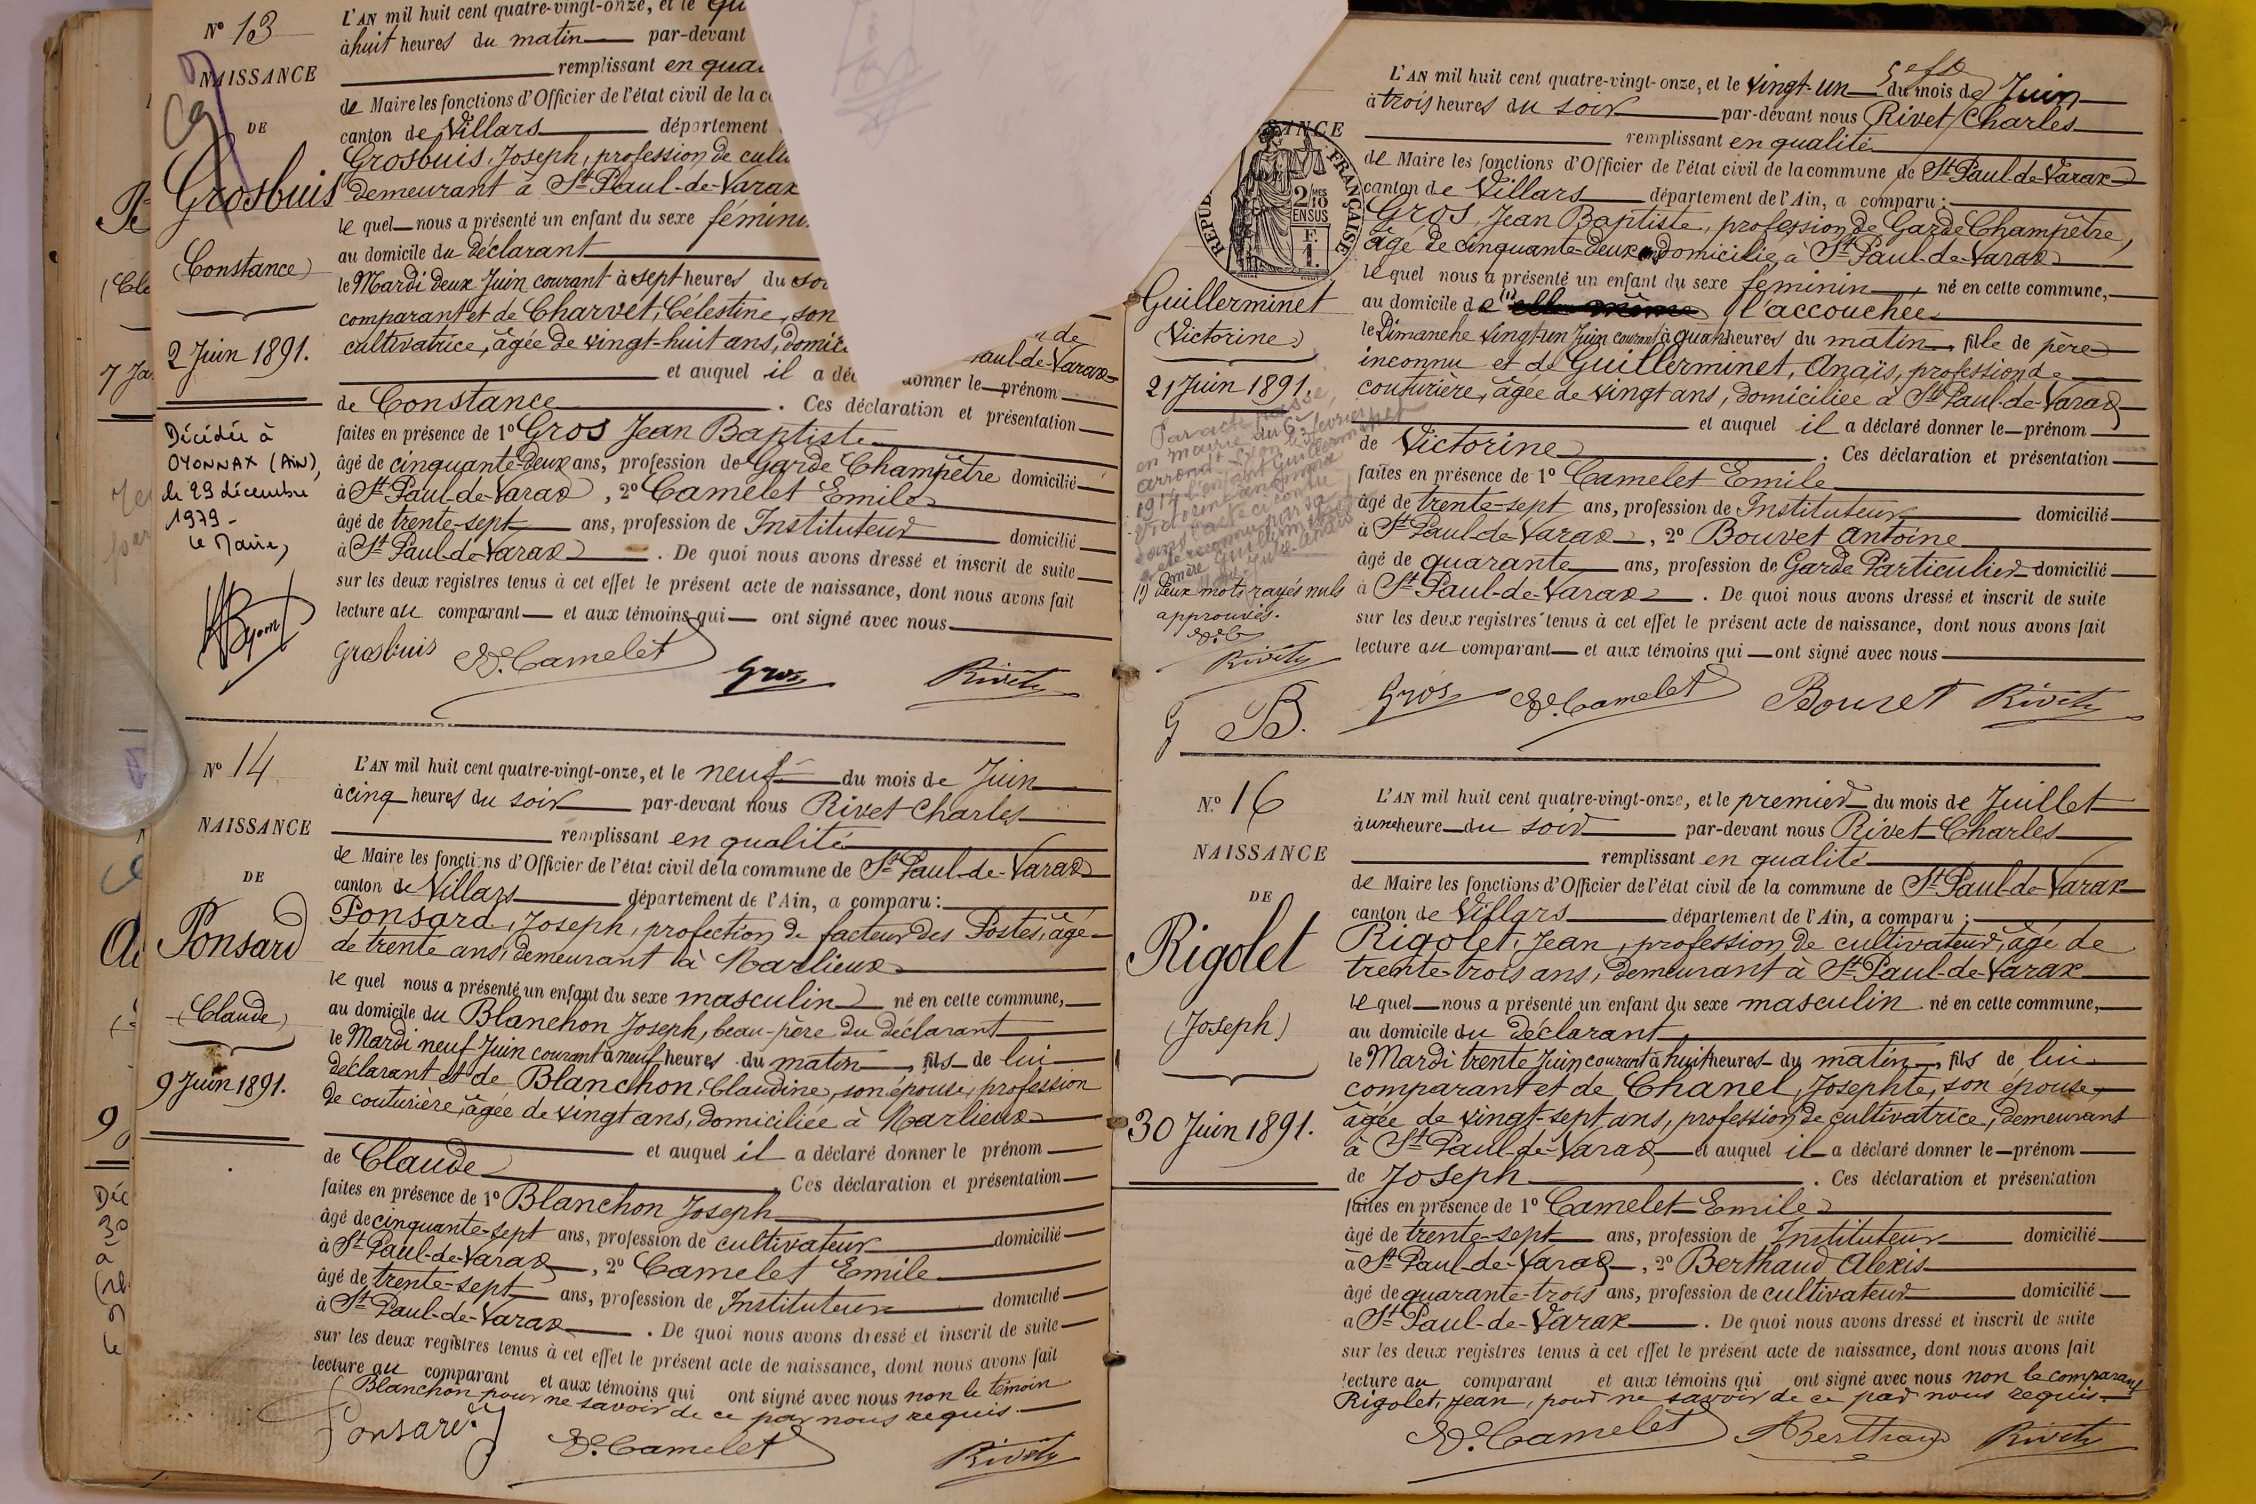 Nº 13
NAISSANCE
DE
Grosbuis
(Constance)
2 Juin 1891.
Décédée à
OYONNAX (Ain),
le 29 décembre
1979 -
Le Maire,
L'AN mil huit cent quatre-vingt-onze, et le
à huit heures du matin par-devant
remplissant en
de Maire les fonctions d'Officier de l'état civil de la
canton de Villars département
Grosbuis, Joseph, profession de
demeurant à St Paul-de-Varax
le quel nous a présenté un enfant du sexe
au domicile du déclarant
le Mardi deux Juin courant à sept heures du
comparant et de Charvet, Célestine, son
cultivatrice, âgée de vingt-huit ans,
de
Paul-de-Varax
et auquel il a donner le prénom
de Constance. Ces déclaration et présentation
faites en présence de 1º Gros Jean Baptiste
âgé de cinquante-deux ans, profession de Garde Champêtre domicilié
à St Paul-de-Varax, 2º Camelet Emile
âgé de trente-sept ans, profession de Instituteur domicilié
à St Paul-de-Varax. De quoi nous avons dressé et inscrit de suite
sur les deux registres tenus à cet effet le présent acte de naissance, dont nous avons fait
lecture au comparant et aux témoins qui ont signé avec nous
Grosbuis E. Camelet Gros Rivet
Nº 14
NAISSANCE
DE
Ponsard
(Claude)
9 Juin 1891.
L'AN mil huit cent quatre-vingt-onze, et le neuf du mois de Juin
à cinq heures du soir par-devant nous Rivet Charles
remplissant en qualité
de Maire les fonctions d'Officier de l'état civil de la commune de St Paul-de-Varax
canton de Villars département de l'Ain, a comparu:
Ponsard, Joseph, profection de facteur des Postes, âgé
de trente ans, demeurant à Marlieux
le quel nous a présenté un enfant du sexe masculin né en cette commune,
au domicile du Blanchon Joseph, beau-père du déclarant
le Mardi neuf Juin courant à neuf heures du matin, fils de lui
déclarant et de Blanchon, Claudine, son épouse, profession
de couturière, âgée de vingt ans, domiciliée à Marlieux
et auquel il a déclaré donner le prénom
de Claude Ces déclaration et présentation
faites en présence de 1º Blanchon Joseph
âgé de cinquante-sept ans, profession de cultivateur domicilié
à St Paul-de-Varax, 2º Camelet Emile
âgé de trente-sept ans, profession de Instituteur domicilié
à St Paul-de-Varax. De quoi nous avons dressé et inscrit de suite
sur les deux registres tenus à cet effet le présent acte de naissance, dont nous avons fait
lecture au comparant et aux témoins qui ont signé avec nous non le témoin
Blanchon pour ne savoir de ce par nous requis.
Ponsard E. Camelet Rivet
FRANÇAISE
2 MES 10
EN SUS
Guillerminet
(Victorine)
21 Juin 1891.
(1) Deux mots rayés nuls
approuvés.
Rivet
G B.
L'AN mil huit cent quatre-vingt-onze, et le vingt-un du mois de Juin
à trois heures du soir par-devant nous Rivet Charles
remplissant en qualité
de Maire les fonctions d'Officier de l'état civil de la commune de St Paul-de-Varax
canton de Villars département de l'Ain, a comparu:
Gros, Jean Baptiste, profession de Garde Champêtre,
âgé de cinquante-deux ans domicilié à St Paul-de-Varax
le quel nous a présenté un enfant du sexe féminin, né en cette commune,
au domicile de (1) elle-même l'accouchée
le Dimanche vingt-un Juin courant à quatre heures du matin, fille de père
inconnu et de Guillerminet, Anaïs, profession de
couturière, âgée de vingt ans, domiciliée à St Paul-de-Varax
et auquel il a déclaré donner le prénom
de Victorine. Ces déclaration et présentation
faites en présence de 1º Camelet Emile
âgé de trente-sept ans, profession de Instituteur domicilié
à St Paul-de-Varax, 2º Bouvet Antoine
âgé de quarante ans, profession de Garde Particulier domicilié
à St Paul-de-Varax. De quoi nous avons dressé et inscrit de suite
sur les deux registres tenus à cet effet le présent acte de naissance, dont nous avons fait
lecture au comparant et aux témoins qui ont signé avec nous
Gros E. Camelet Bouvet Rivet
N.º 16
NAISSANCE
DE
Rigolet
(Joseph)
30 Juin 1891.
L'AN mil huit cent quatre-vingt-onze, et le premier du mois de Juillet
à une heure du soir par-devant nous Rivet Charles
remplissant en qualité
de Maire les fonctions d'Officier de l'état civil de la commune de St Paul-de-Varax
canton de Villars département de l'Ain, a comparu:
Rigolet, Jean, profession de cultivateur, âgé de
trente-trois ans, demeurant à St Paul-de-Varax
le quel nous a présenté un enfant du sexe masculin né en cette commune,
au domicile du déclarant
le Mardi trente Juin courant à huit heures du matin, fils de lui
comparant et de Chanel, Josephte, son épouse,
âgée de vingt-sept ans, profession de cultivatrice, demeurant
à St Paul-de-Varax et auquel il a déclaré donner le prénom
de Joseph. Ces déclaration et présentation
faites en présence de 1º Camelet Emile
âgé de trente-sept ans, profession de Instituteur domicilié
à St Paul-de-Varax, 2º Berthaud Alexis
âgé de quarante-trois ans, profession de cultivateur domicilié
à St Paul-de-Varax. De quoi nous avons dressé et inscrit de suite
sur les deux registres tenus à cet effet le présent acte de naissance, dont nous avons fait
lecture au comparant et aux témoins qui ont signé avec nous non le comparant
Rigolet, Jean, pour ne savoir de ce par nous requis.
E. Camelet Berthaud Rivet